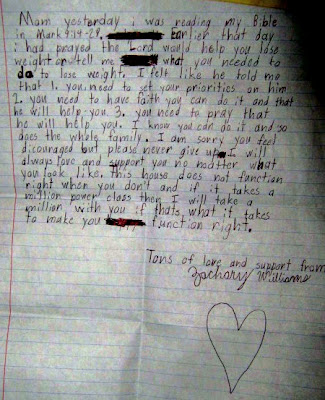 Mom yesterday i was reading my Bible
in Mark 9:14-29. Earlier that day
i had prayed the Lord would help you lose
weight or tell me what you needed to
do to lose weight. I felt like he told me
that 1. you need to set your priorities on him
2. you need to have faith you can do it and that
he will help you 3. you need to pray that
he will help you. I know you can do it and so
does the whole family. I am sorry you feel
dicouraged but please never give up I will
always love and support you no matter what
you look like. This house does not function
right when you don't and if it takes a
million power class then I will take a
million with you if thats what it takes
to make you function right.
Tons of love and support from
Zachary Williams